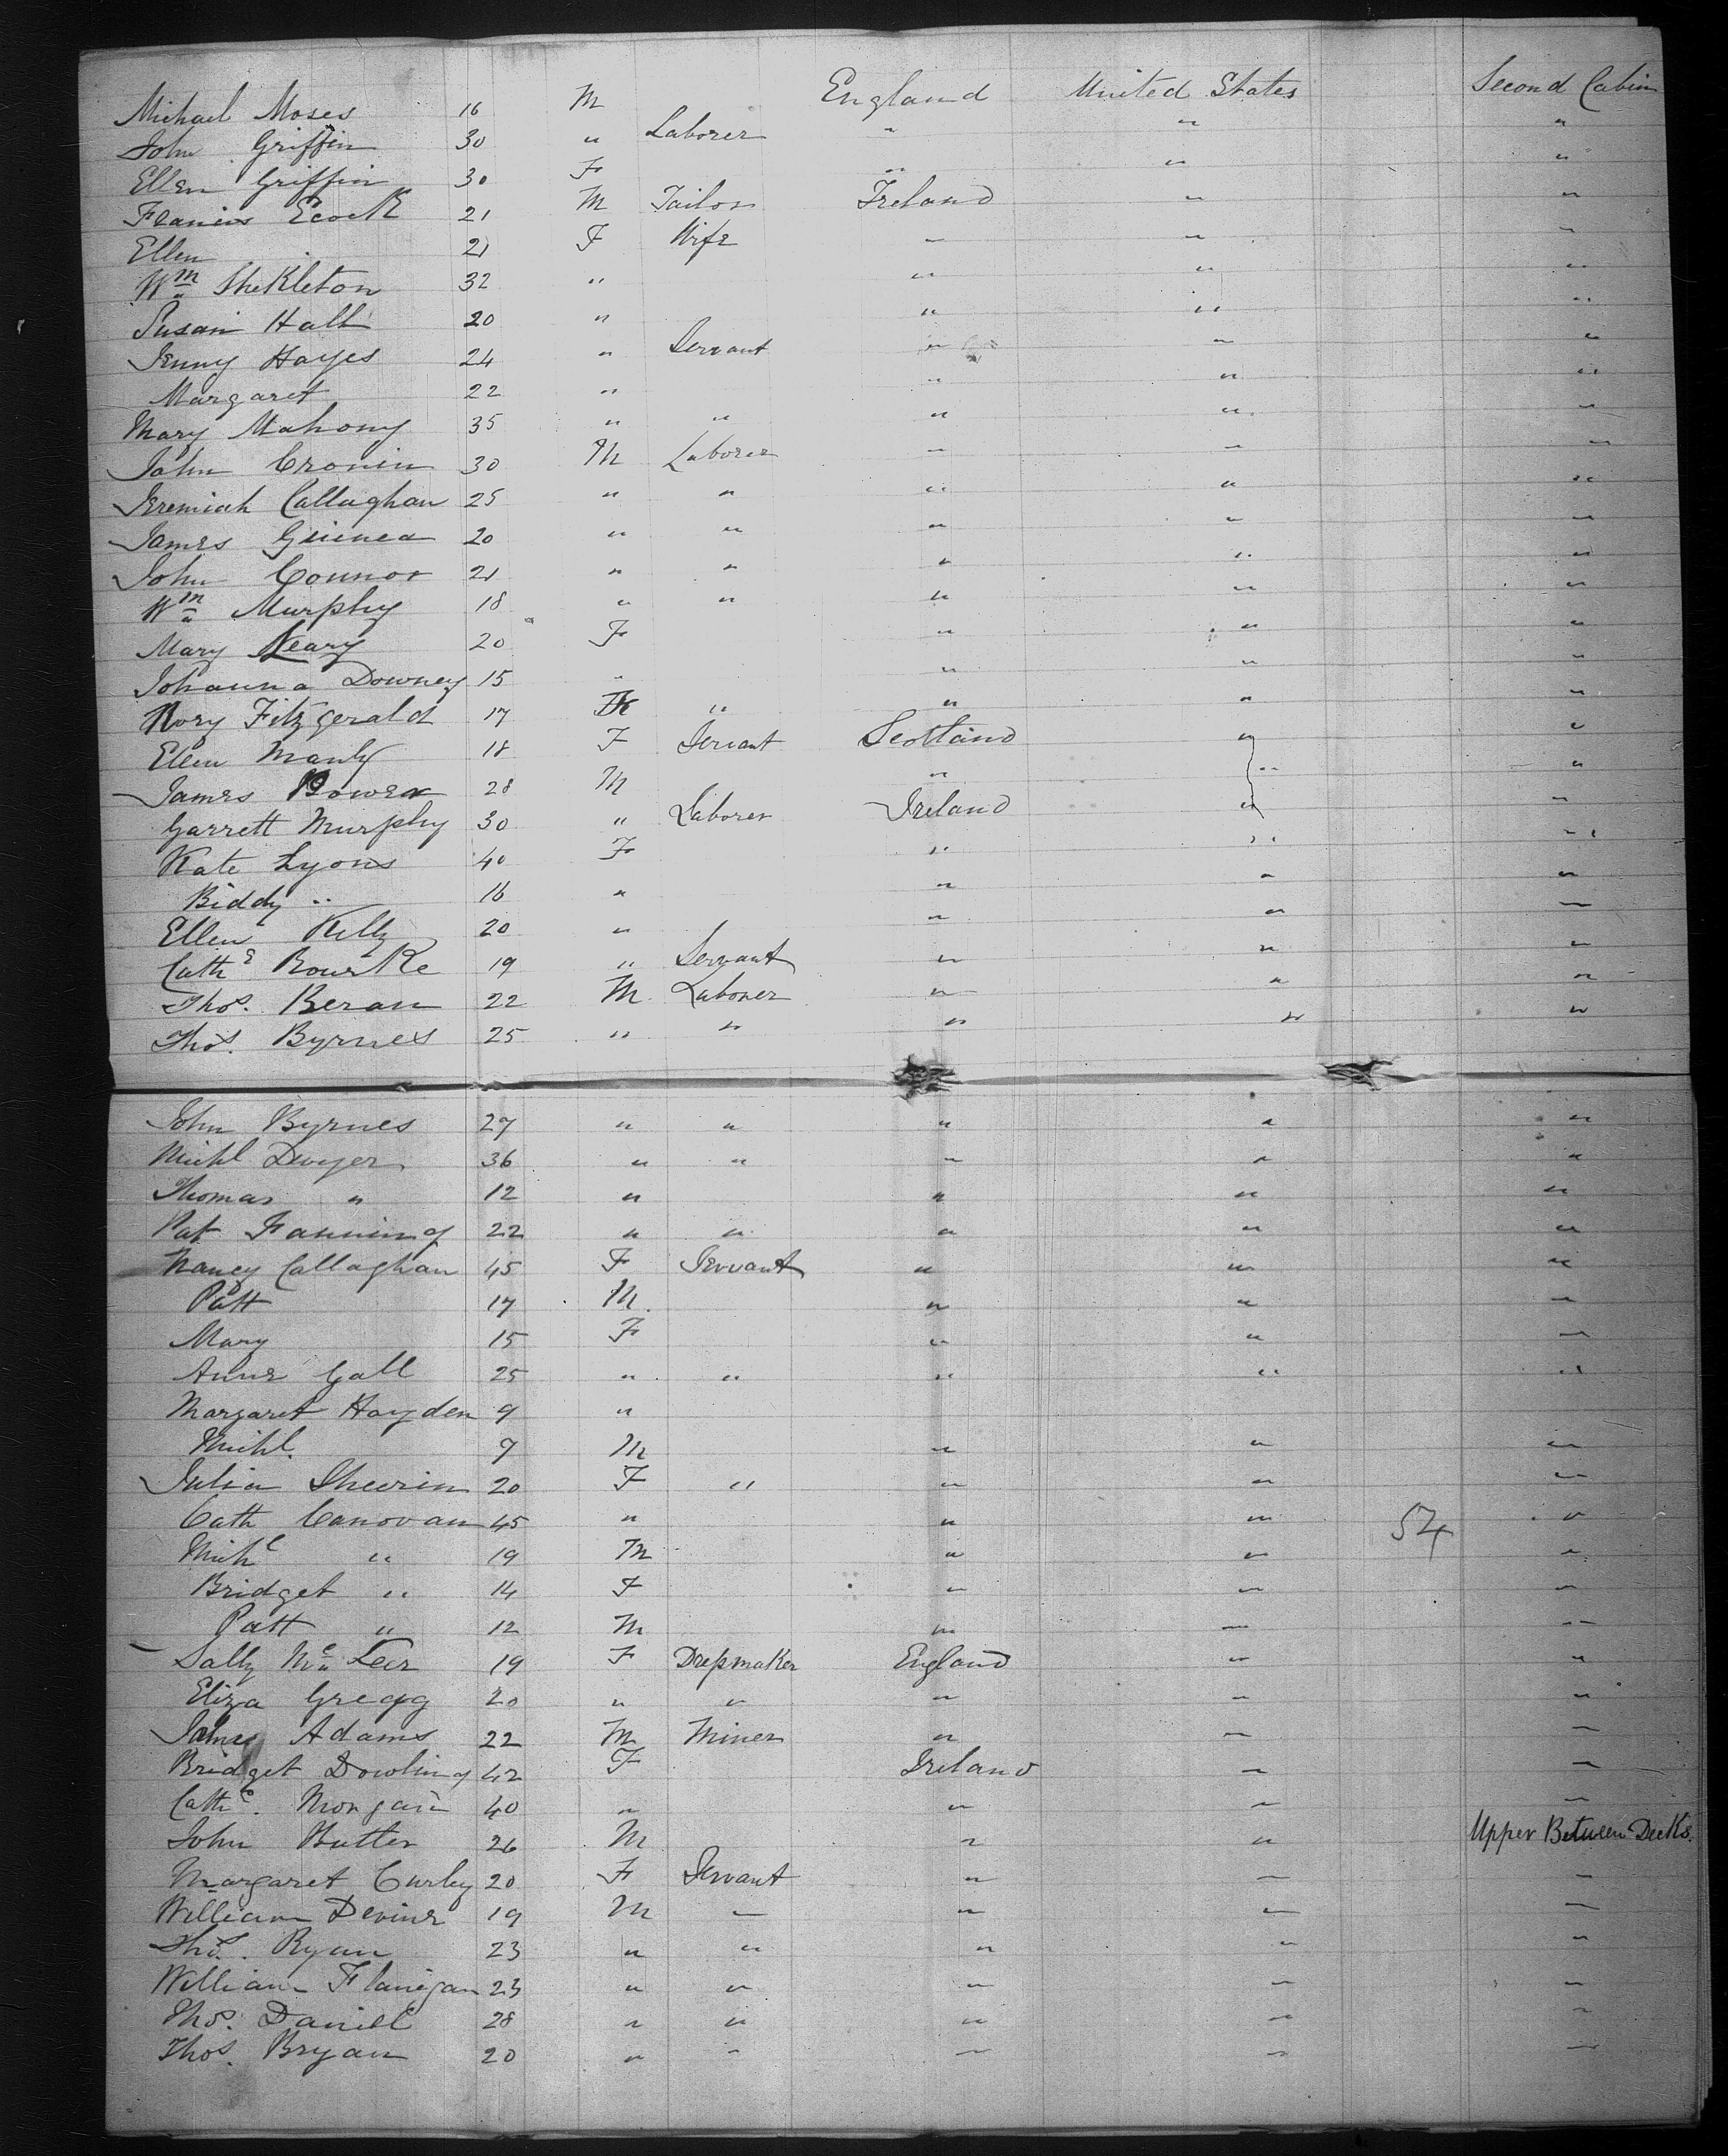 Michael Moses 16 M England United States Second Cabin
John Griffin 30 " Laborer " " "
Ellen Griffin 30 F " " "
Francis Ecock 21 M Tailor Ireland " "
Ellen 21 F Wife " " "
Wm Shekleton 32 " " " "
Susan Hall 20 " " " "
Jenny Hayes 24 " Servant " " "
Margaret 22 " " " "
Mary Mahony 35 " " " " "
John Cronin 30 M Laborer " " "
Jeremiah Callaghan 25 " " " " "
James Guinea 20 " " " " "
John Connor 21 " " " " "
Wm Murphy 18 " " " " "
Mary Leary 20 F " " "
Johanna Downey 15 " " " "
Fitzgerald 17 " " " "
Ellen Manly 18 F Servant Scotland " "
James 28 M " " "
Garrett Murphy 30 " Laborer Ireland " "
Kate Lyons 40 F " " "
Biddy " 16 " " " "
Ellen Kelly 20 " " " "
Cathe Bourke 19 " Servant " " "
Thos. Beran 22 M Laborer " " "
Thos. Byrnes 25 " " " " "
John Byrnes 27 " " " " "
Michl Dwyer 36 " " " " "
Thomas " 12 " " " "
Pat Fanning 22 " " " " "
Nancy Callaghan 45 F Servant " " "
Patt 17 M " " "
Mary 15 F " " "
Anne Gall 25 " " " " "
Margaret Hayden 9 "
Michl. 7 M " " "
Julia Sheerin 20 F " " " "
Cath Canovan 45 " " " 54 "
Michl " 19 M " " "
Bridget " 14 F " " "
Patt " 12 M " " "
Sally Mc Leer 19 F Dressmaker England " "
Eliza Gregg 20 " " " " "
James Adams 22 M Miner " " "
Bridget Dowling 42 F Ireland " "
Cathe. Morgan 40 " " " "
John Butler 26 M " " Upper Between Decks.
Margaret Curley 20 F Servant " " "
William Devine 19 M " " " "
Thos. Ryan 23 " " " " "
William Flanigan 23 " " " " "
Thos. Daniel 28 " " " " "
Thos. Bryan 20 " " " " "